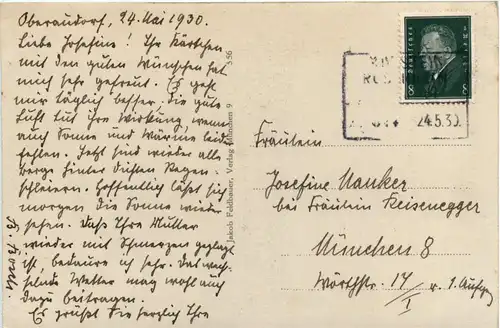 Oberaudorf, 24. Mai 1930.
Liebe Josefine! Ihr Kärtchen
mit den guten Wünschen hat
mich sehr gefreut. Es geht
mir täglich besser; die gute
Luft tut ihre Wirkung, wenn
auch Sonne und Wärme leider
fehlen. Jetzt sind wieder alle
Berge hinter dichten Regen-
schleiern. Hoffentlich läßt sich
morgen die Sonne wieder
sehen. Daß Ihre Mutter
wieder mit Schmerzen geplagt
ist, bedaure ich sehr. Das wech-
selnde Wetter mag wohl auch
dazu beitragen.
Es grüßt Sie herzlich Ihre
Jakob Feldbauer, Verlag München 9
556
Deutsches Reich
8 8
24.5.30.
Fräulein
Josefine Manker
bei Fräulein Reisenegger
München 8
Wörthstr. 17/I r. 1. Aufg.